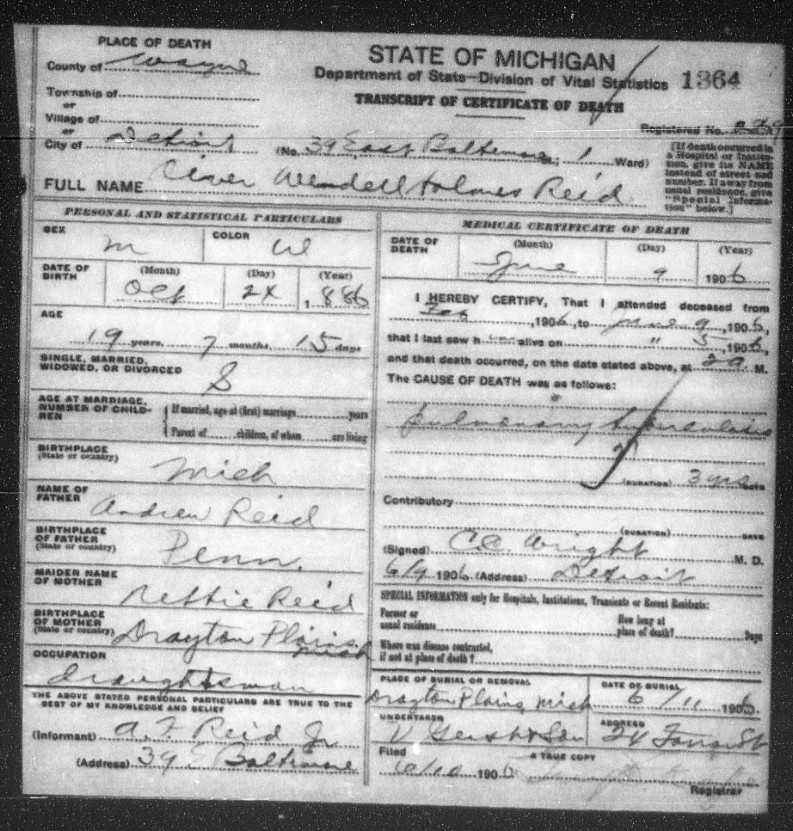 PLACE OF DEATH
County of Wayne
Township of
or
Village of
or
City of Detroit
STATE OF MICHIGAN
Department of State—Division of Vital Statistics 1364
TRANSCRIPT OF CERTIFICATE OF DEATH
Registered No.
(No. 39 East Baltimore St.; 1 Ward)
[If death occurred in
a Hospital or Institu-
tion, give its NAME
instead of street and
number. If away from
usual residence, give
"Special Informa-
tion" below.]
FULL NAME Oliver Wendell Holmes Reid
PERSONAL AND STATISTICAL PARTICULARS
SEX m
COLOR W
DATE OF BIRTH
(Month) (Day) (Year)
Oct 24 1886
AGE
19 years, 7 months, 15 days
SINGLE, MARRIED,
WIDOWED, OR DIVORCED S
AGE AT MARRIAGE,
NUMBER OF CHILD-
REN
If married, age at (first) marriage years
Parent of children, of whom are living
BIRTHPLACE
(State or country) Mich
NAME OF
FATHER Andrew Reid
BIRTHPLACE
OF FATHER
(State or country) Penn.
MAIDEN NAME
OF MOTHER Nettie Reid
BIRTHPLACE
OF MOTHER
(State or country) Drayton Plains Mich
OCCUPATION
draughtsman
THE ABOVE STATED PERSONAL PARTICULARS ARE TRUE TO THE
BEST OF MY KNOWLEDGE AND BELIEF
(Informant) A. F. Reid Jr
(Address) 39 E Baltimore
MEDICAL CERTIFICATE OF DEATH
DATE OF DEATH
(Month) (Day) (Year)
June 9 1906
I HEREBY CERTIFY, That I attended deceased from
Feb, 1906, to June 9, 1906,
that I last saw h im alive on " 5, 1906,
and that death occurred, on the date stated above, at 2 a. M.
The CAUSE OF DEATH was as follows:
pulmonary tuberculosis
(DURATION) 3 yrs DAYS
Contributory
(DURATION) DAYS
(Signed) C.C. Wright M. D.
6/9 1906 (Address) Detroit
SPECIAL INFORMATION only for Hospitals, Institutions, Transients or Recent Residents:
Former or
usual residence
How long at
place of death? Days
Where was disease contracted,
if not at place of death?
PLACE OF BURIAL OR REMOVAL
Drayton Plains, Mich
DATE OF BURIAL
6/11 1906
UNDERTAKER
V Geist & Son
ADDRESS
Filed
6/10 1906
A TRUE COPY
Registrar